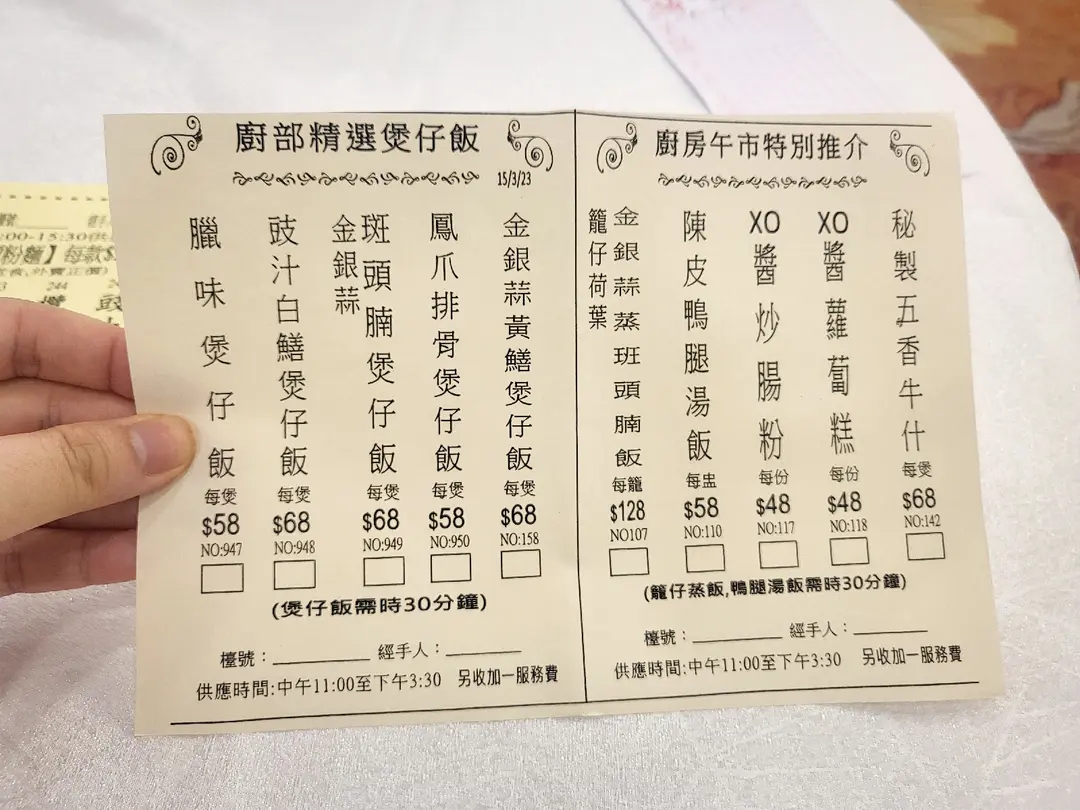 廚部精選煲仔飯
15/3/23
金銀蒜黃鱔煲仔飯
每煲
$68
NO:158
鳳爪排骨煲仔飯
每煲
$58
NO:950
斑頭腩煲仔飯
金銀蒜
每煲
$68
NO:949
豉汁白鱔煲仔飯
每煲
$68
NO:948
臘味煲仔飯
每煲
$58
NO:947
(煲仔飯需時30分鐘)
檯號：__________ 經手人：________
供應時間:中午11:00至下午3:30 另收加一服務費
廚房午市特別推介
秘製五香牛什
每煲
$68
NO:142
XO醬蘿蔔糕
每份
$48
NO:118
XO醬炒腸粉
每份
$48
NO:117
陳皮鴨腿湯飯
每盅
$58
NO:110
金銀蒜蒸班頭腩飯
籠仔荷葉
每籠
$128
NO107
(籠仔蒸飯,鴨腿湯飯需時30分鐘)
檯號：__________ 經手人：________
供應時間:中午11:00至下午3:30 另收加一服務費
:00-15:30供
粉麵】每款$
244
豉